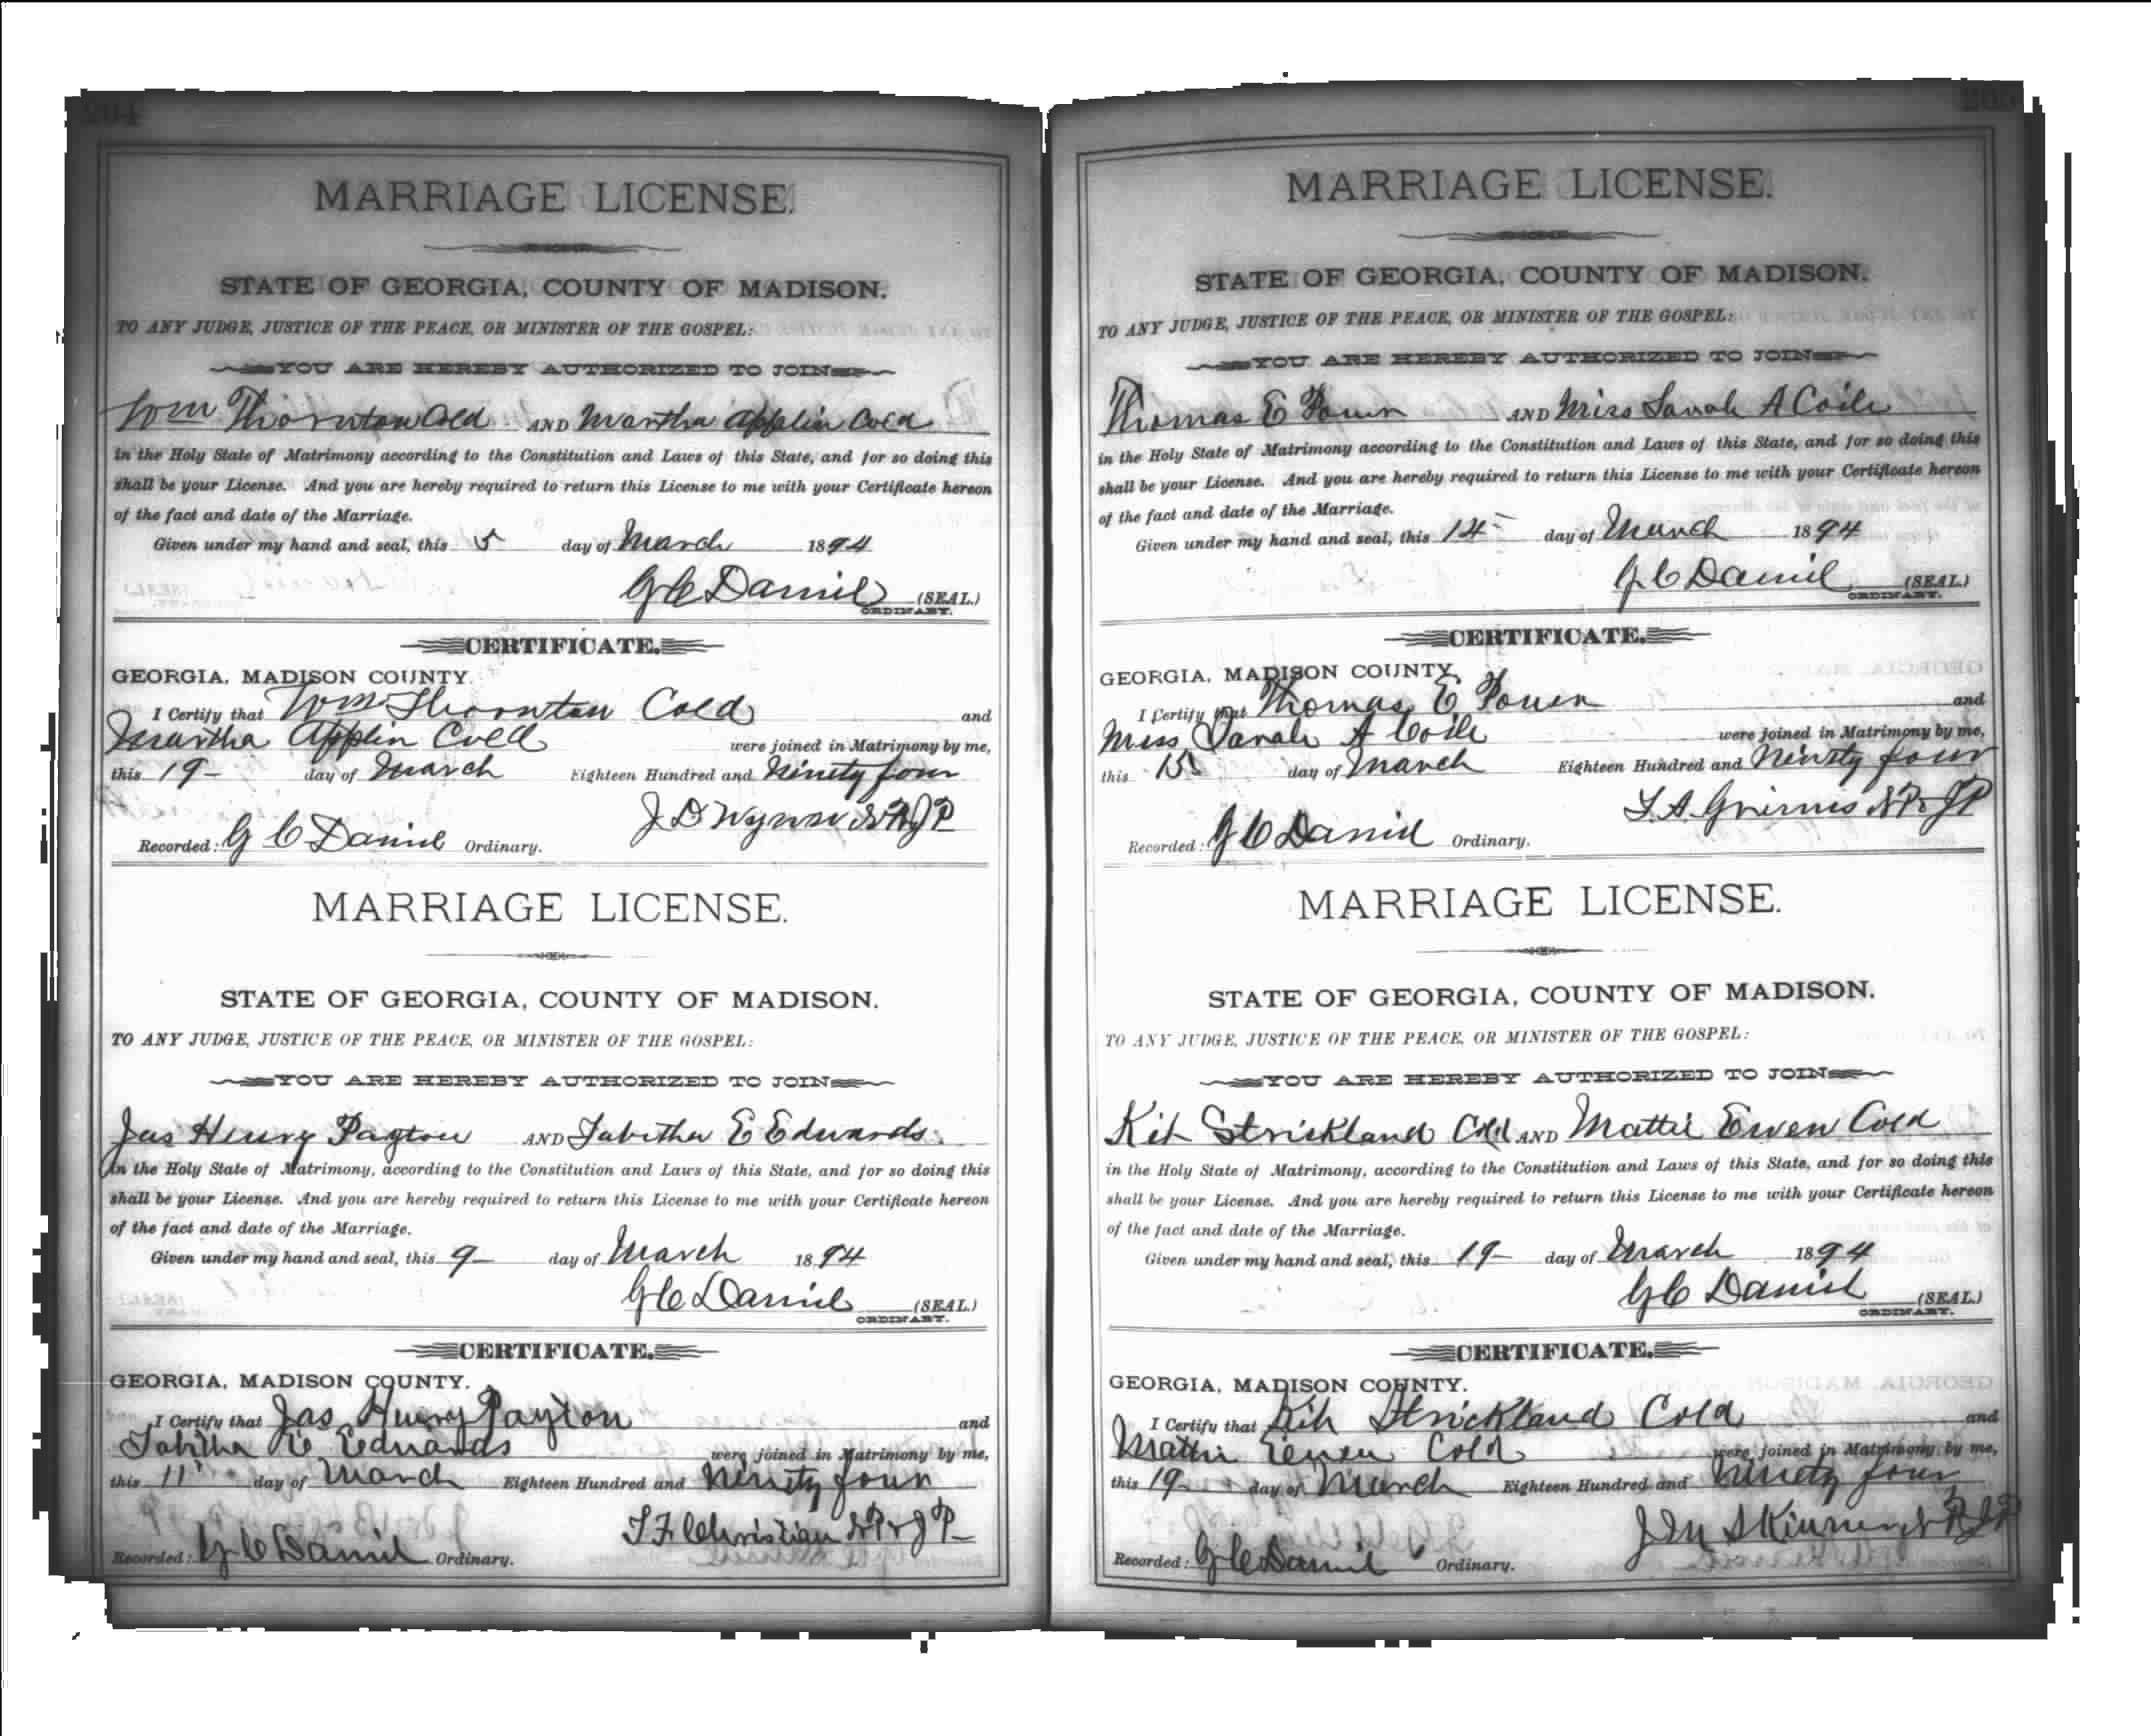 204
MARRIAGE LICENSE.
STATE OF GEORGIA, COUNTY OF MADISON.
TO ANY JUDGE, JUSTICE OF THE PEACE, OR MINISTER OF THE GOSPEL:
YOU ARE HEREBY AUTHORIZED TO JOIN
Wm Thornton Cold AND Martha Applin Cold
in the Holy State of Matrimony according to the Constitution and Laws of this State, and for so doing this
shall be your License. And you are hereby required to return this License to me with your Certificate hereon
of the fact and date of the Marriage.
Given under my hand and seal, this 5 day of March 1894
G C Daniel (SEAL.)
ORDINARY.
CERTIFICATE.
GEORGIA, MADISON COUNTY.
I Certify that Wm Thornton Cold and
Martha Applin Cold were joined in Matrimony by me,
this 19 day of March Eighteen Hundred and Ninety four
J D Wynne N P J P
Recorded: G C Daniel Ordinary.
MARRIAGE LICENSE.
STATE OF GEORGIA, COUNTY OF MADISON.
TO ANY JUDGE, JUSTICE OF THE PEACE, OR MINISTER OF THE GOSPEL:
YOU ARE HEREBY AUTHORIZED TO JOIN
Jas Henry Payton AND Tabitha E Edwards
in the Holy State of Matrimony, according to the Constitution and Laws of this State, and for so doing this
shall be your License. And you are hereby required to return this License to me with your Certificate hereon
of the fact and date of the Marriage.
Given under my hand and seal, this 9 day of March 1894
G C Daniel (SEAL.)
ORDINARY.
CERTIFICATE.
GEORGIA, MADISON COUNTY.
I Certify that Jas Henry Payton and
Tabitha E Edwards were joined in Matrimony by me,
this 11 day of March Eighteen Hundred and Ninety four
T F Christian N P & J P
Recorded: G C Daniel Ordinary.
205
MARRIAGE LICENSE.
STATE OF GEORGIA, COUNTY OF MADISON.
TO ANY JUDGE, JUSTICE OF THE PEACE, OR MINISTER OF THE GOSPEL:
YOU ARE HEREBY AUTHORIZED TO JOIN
Thomas E AND Miss Sarah A Coile
in the Holy State of Matrimony according to the Constitution and Laws of this State, and for so doing this
shall be your License. And you are hereby required to return this License to me with your Certificate hereon
of the fact and date of the Marriage.
Given under my hand and seal, this 14 day of March 1894
G C Daniel (SEAL.)
ORDINARY.
CERTIFICATE.
GEORGIA, MADISON COUNTY.
I Certify that Thomas E and
Miss Sarah A Coile were joined in Matrimony by me,
this 15 day of March Eighteen Hundred and Ninety four
Grimes N P & J P
Recorded: G C Daniel Ordinary.
MARRIAGE LICENSE.
STATE OF GEORGIA, COUNTY OF MADISON.
TO ANY JUDGE, JUSTICE OF THE PEACE, OR MINISTER OF THE GOSPEL:
YOU ARE HEREBY AUTHORIZED TO JOIN
Kit Strickland Cold AND Mattie Cold
in the Holy State of Matrimony, according to the Constitution and Laws of this State, and for so doing this
shall be your License. And you are hereby required to return this License to me with your Certificate hereon
of the fact and date of the Marriage.
Given under my hand and seal, this 19 day of March 1894
G C Daniel (SEAL.)
ORDINARY.
CERTIFICATE.
GEORGIA, MADISON COUNTY.
I Certify that Kit Strickland Cold and
Mattie Cold were joined in Matrimony by me,
this 19 day of March Eighteen Hundred and Ninety four
J M Skinner N P J P
Recorded: G C Daniel Ordinary.